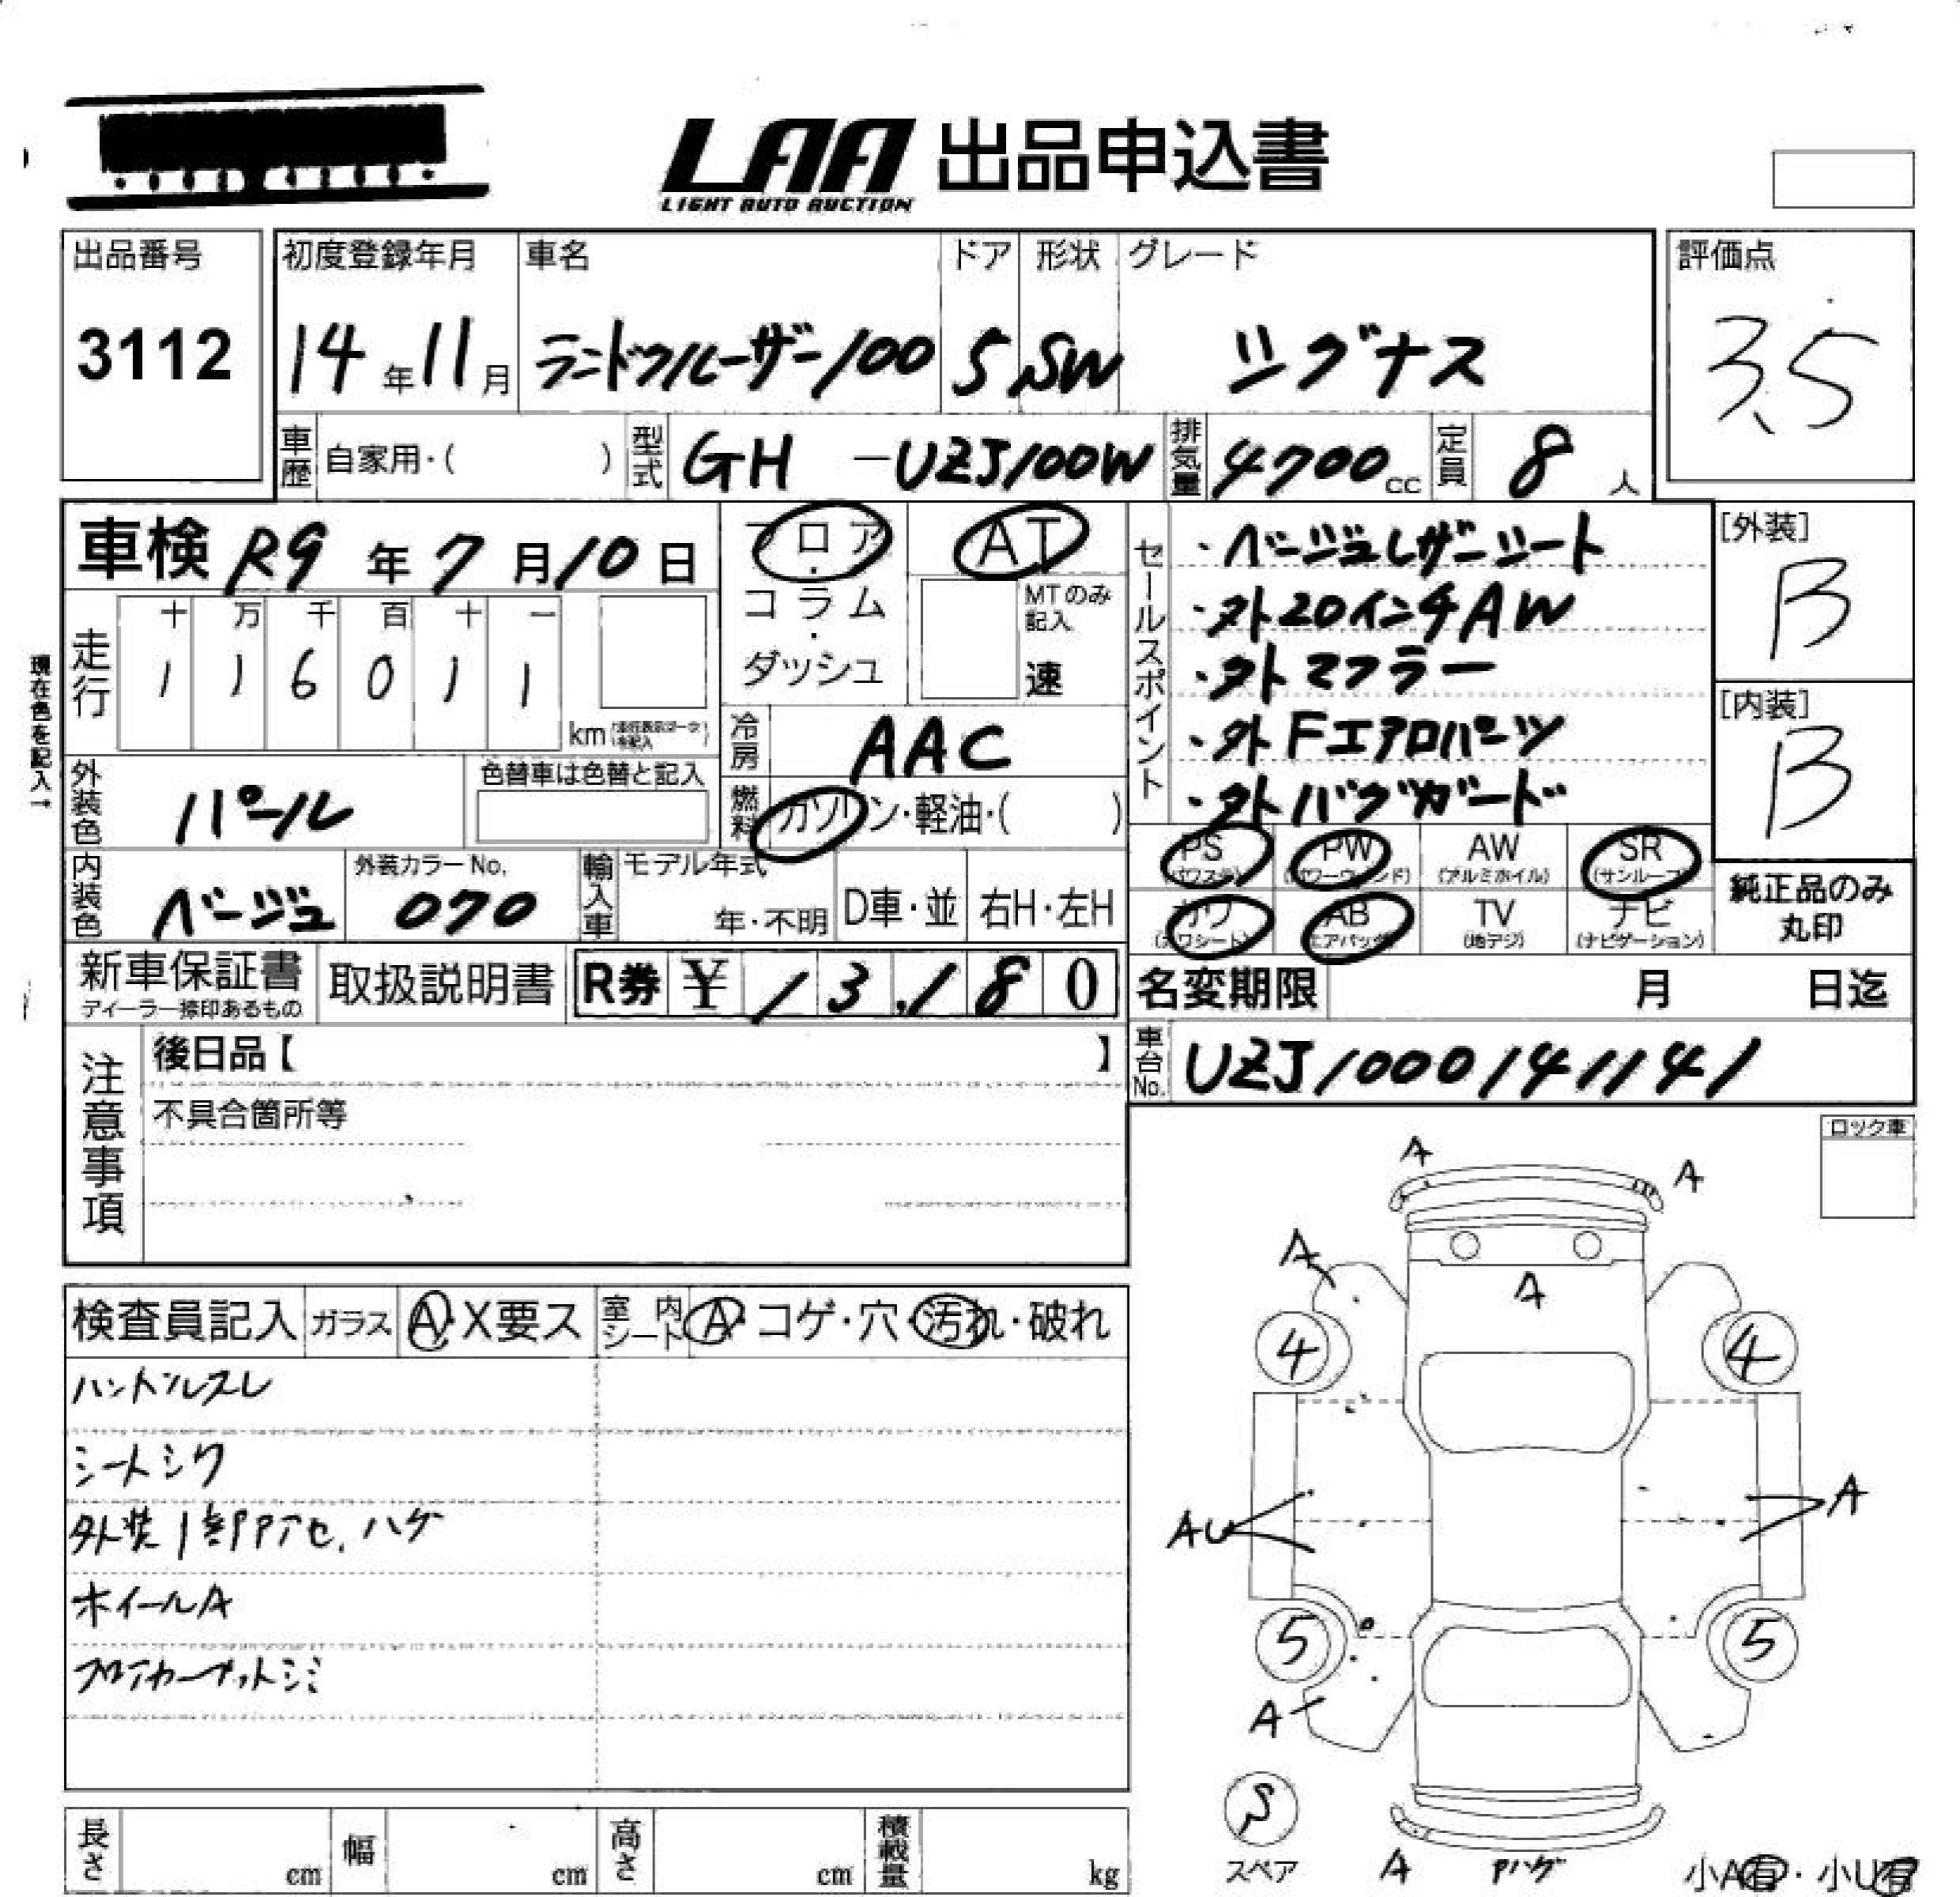 LAA 出品申込書
LIGHT AUTO AUCTION
出品番号
3112
初度登録年月
14年11月
車名
ランドクルーザー100
ドア
5
形状
SW
グレード
シグナス
評価点
3.5
車歴 自家用・( )
型式 GH-UZJ100W
排気量 4700cc
定員 8人
車検 R9年7月10日
フロア・コラム・ダッシュ
AT
MTのみ記入
速
走行
十 万 千 百 十 一
1 1 6 0 1 1
km
現在色を記入→
冷房 AAC
燃料 ガソリン・軽油・( )
外装色 パール
色替車は色替と記入
内装色 ベージュ
外装カラーNo. 070
輸入車 モデル年式
年・不明
D車・並
右H・左H
セールスポイント
・ベージュレザーシート
・外20インチAW
・外マフラー
・外Fエアロバンパーツ
・外バグガード
[外装]
B
[内装]
B
PS (パワステ)
PW (パワーウィンド)
AW (アルミホイル)
SR (サンルーフ)
カワ (カワシート)
AB (エアバッグ)
TV (地デジ)
ナビ (ナビゲーション)
純正品のみ丸印
新車保証書
ディーラー捺印あるもの
取扱説明書
R券 ¥13,180
名変期限 月 日迄
車台No. UZJ1000141141
注意事項
後日品【 】
不具合箇所等
ロック車
検査員記入
ガラス A・X要ス
室内シート A・コゲ・穴・汚れ・破れ
ハンドルスレ
シートシワ
外装1部アセ、ハゲ
ホイールA
フロアカーペットシミ
A
A
A
A
4
4
AU
A
5
5
A
S
スペア
A
Pハゲ
小A有・小U有
長さ cm
幅 cm
高さ cm
積載量 kg